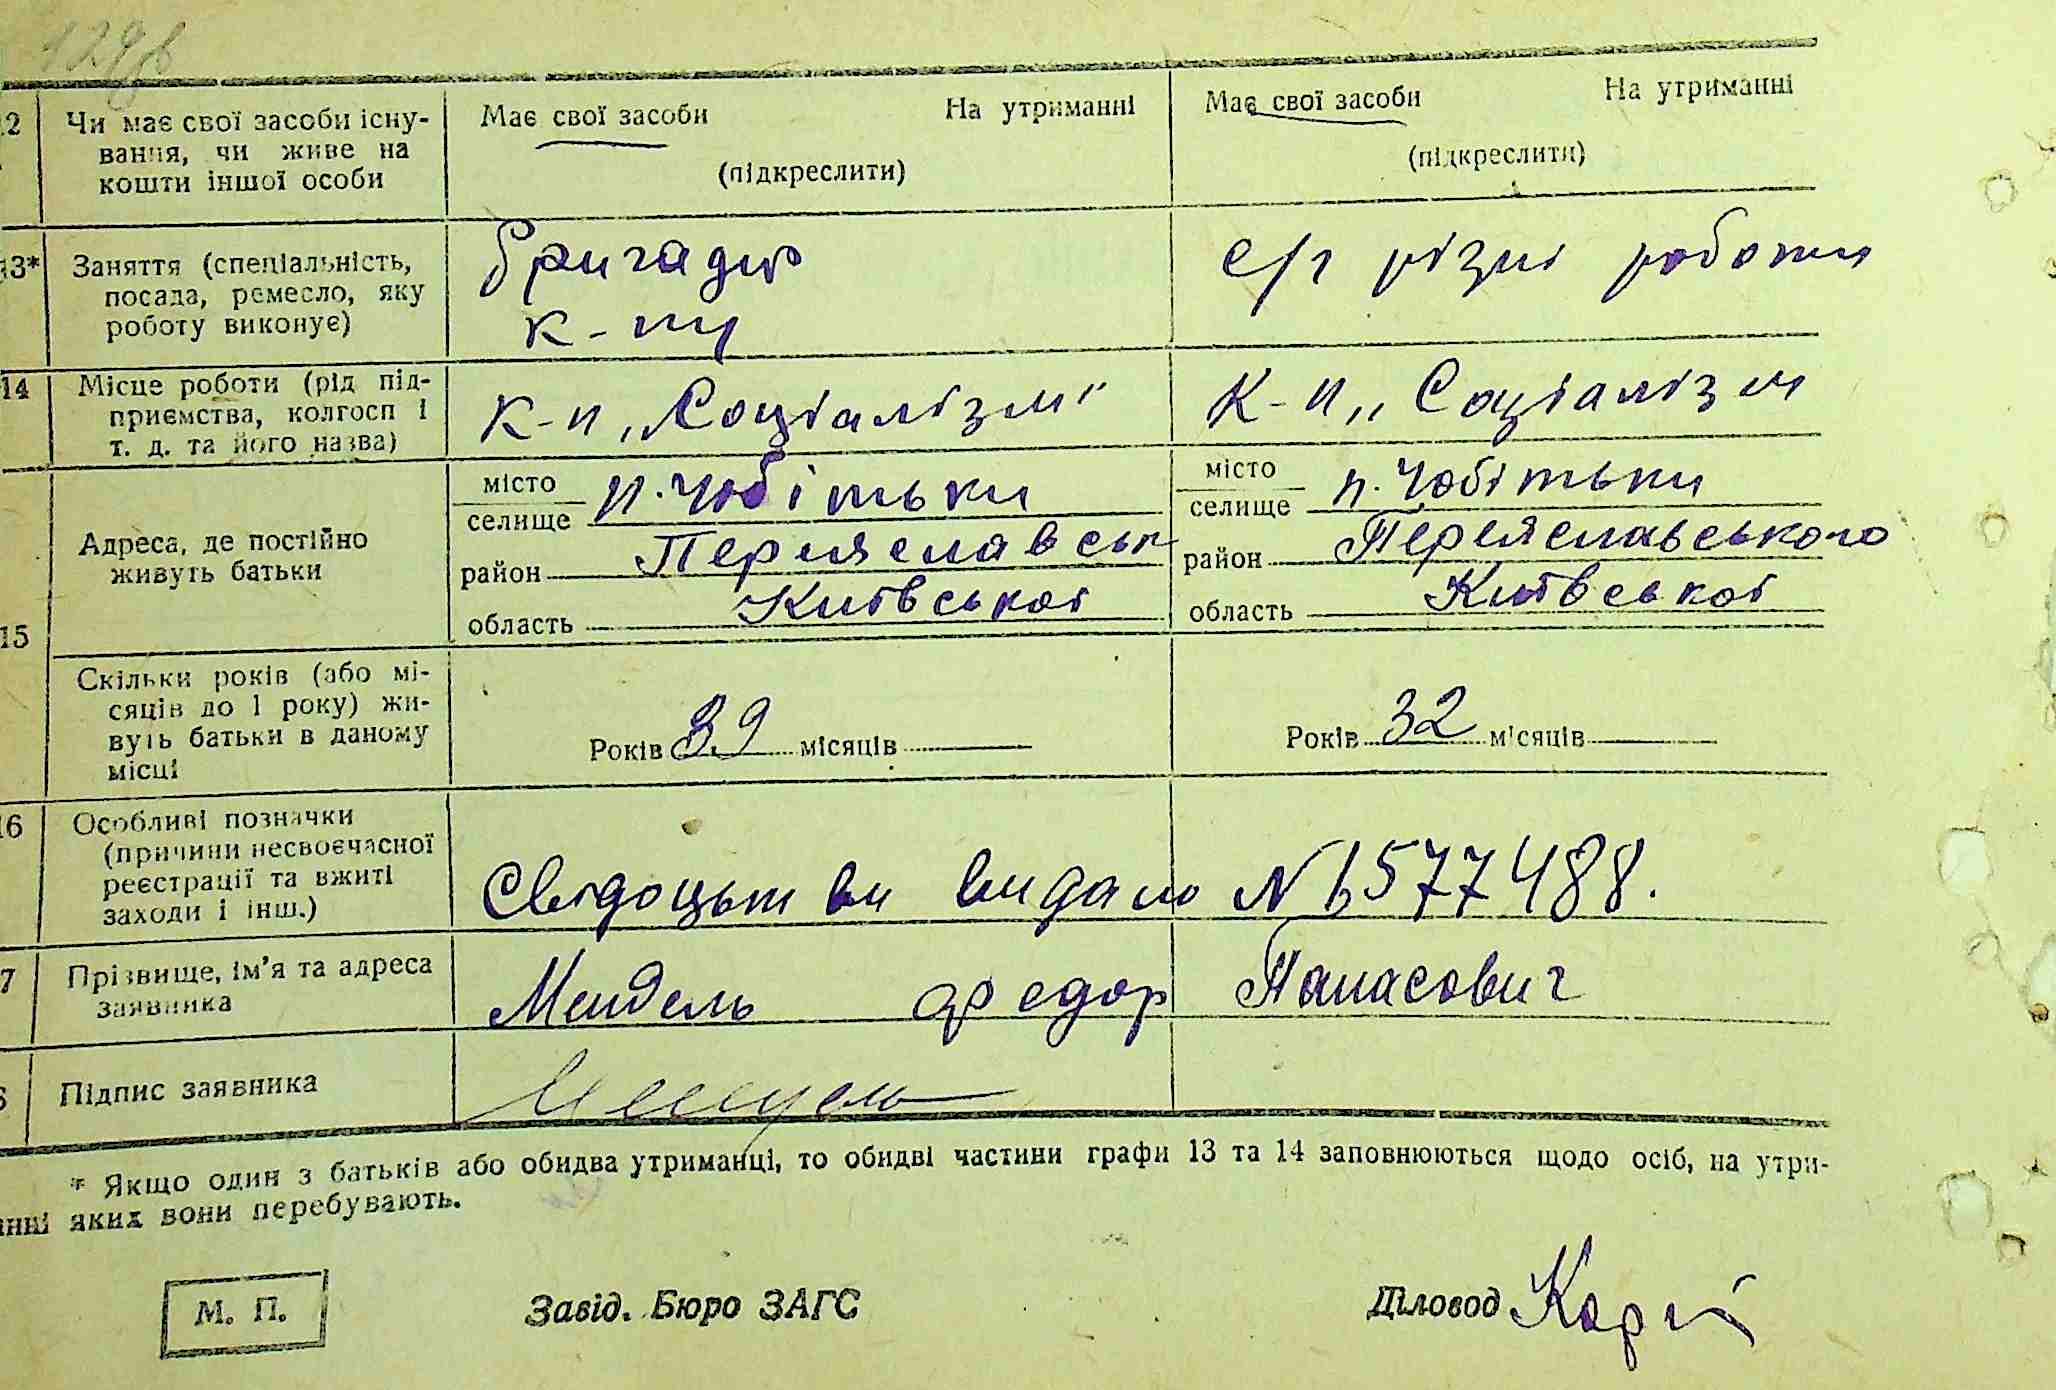 129
12 Чи має свої засоби існу-
вання, чи живе на
кошти іншої особи
Має свої засоби На утриманні
(підкреслити)
Має свої засоби На утриманні
(підкреслити)
13* Заняття (спеціальність,
посада, ремесло, яку
роботу виконує)
бригадир
к-пу
с/г різні роботи
14 Місце роботи (рід під-
приємства, колгосп і
т. д. та його назва)
к-п „Соціалізм"
К-п „Соціалізм
15 Адреса, де постійно
живуть батьки
місто
селище п. Чобітьки
район Переяславськ
область Київської
місто
селище п. Чобітьки
район Переяславського
область Київської
Скільки років (або мі-
сяців до 1 року) жи-
вуть батьки в даному
місці
Років 39 місяців
Років 32 місяців
16 Особливі позначки
(причини несвоєчасної
реєстрації та вжиті
заходи і інш.)
Свідоцтво видано № 577488.
7 Прізвище, ім'я та адреса
заявника
Мендель Федор Панасович
Підпис заявника
Мендель
* Якщо один з батьків або обидва утриманці, то обидві частини графи 13 та 14 заповнюються щодо осіб, на утри-
анні яких вони перебувають.
М. П.
Завід. Бюро ЗАГС
Діловод